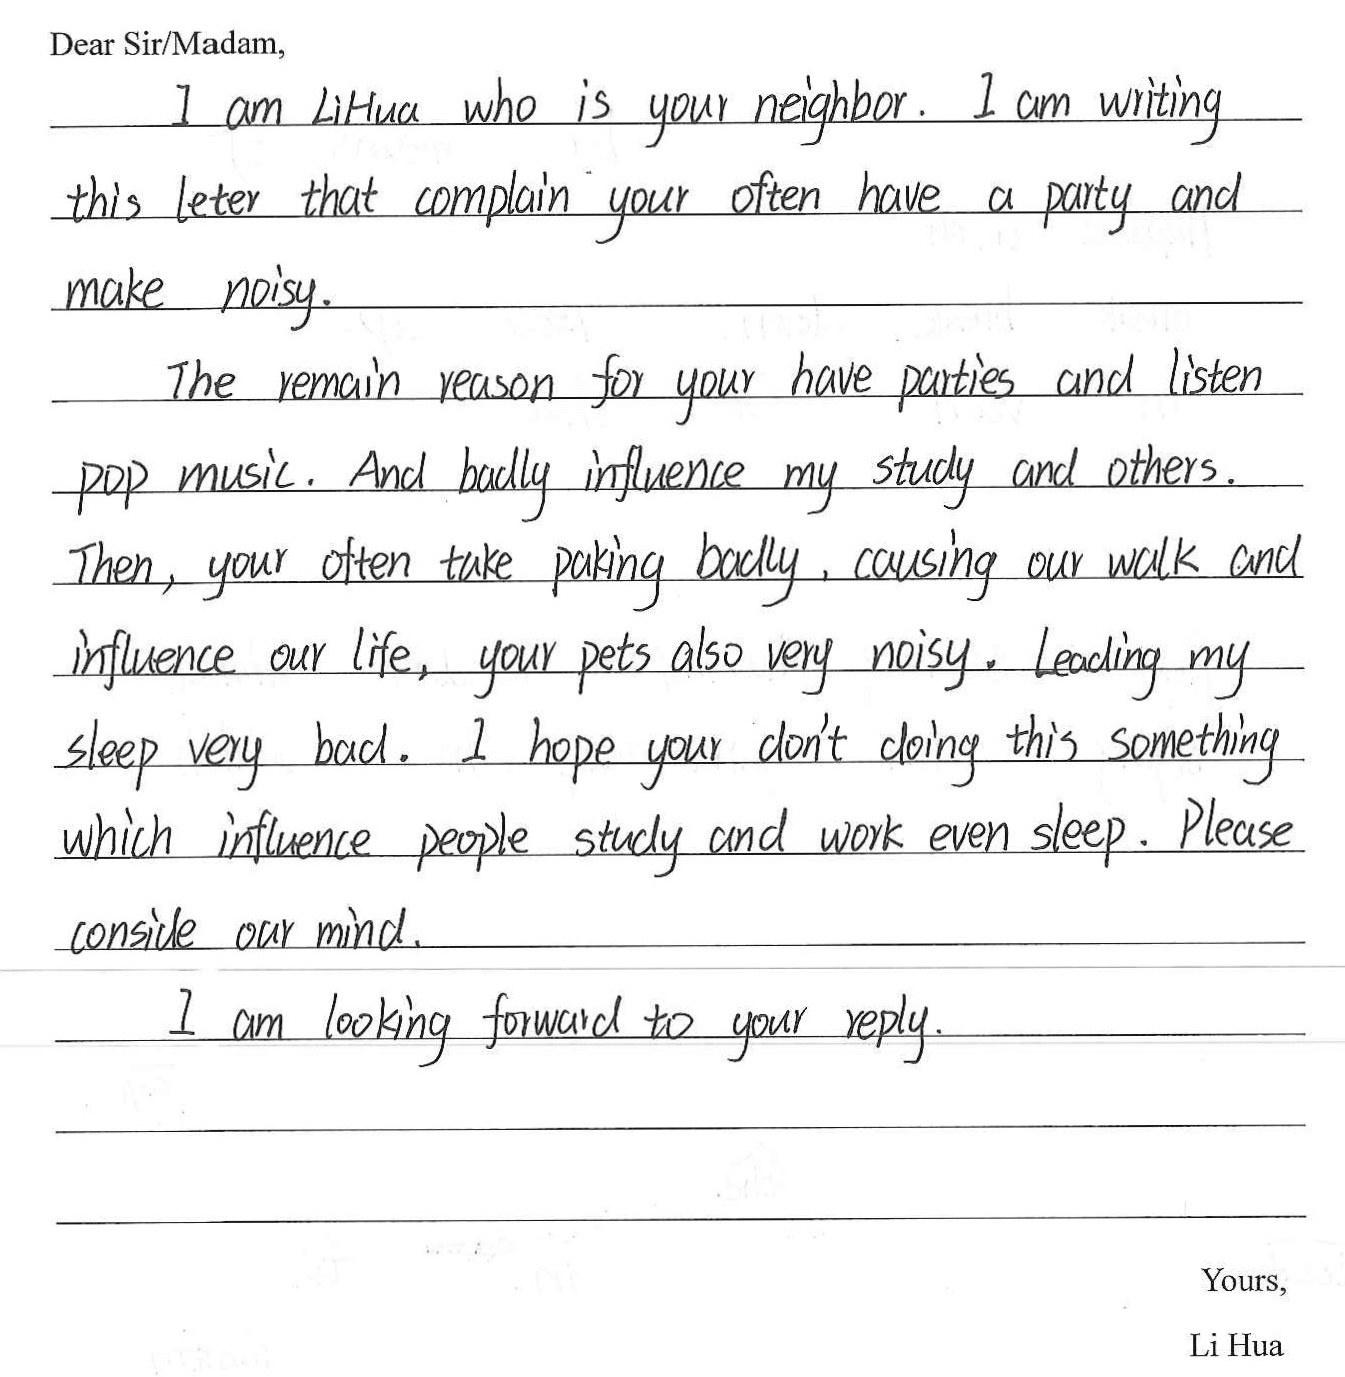 Dear Sir/Madam,
I am LiHua who is your neighbor. I am writing
this leter that complain your often have a party and
make noisy.
The remain reason for your have parties and listen
pop music. And badly influence my study and others.
Then, your often take paking badly, causing our walk and
influence our life, your pets also very noisy. Leading my
sleep very bad. I hope your don't doing this something
which influence people study and work even sleep. Please
conside our mind.
I am looking forward to your reply.
Yours,
Li Hua